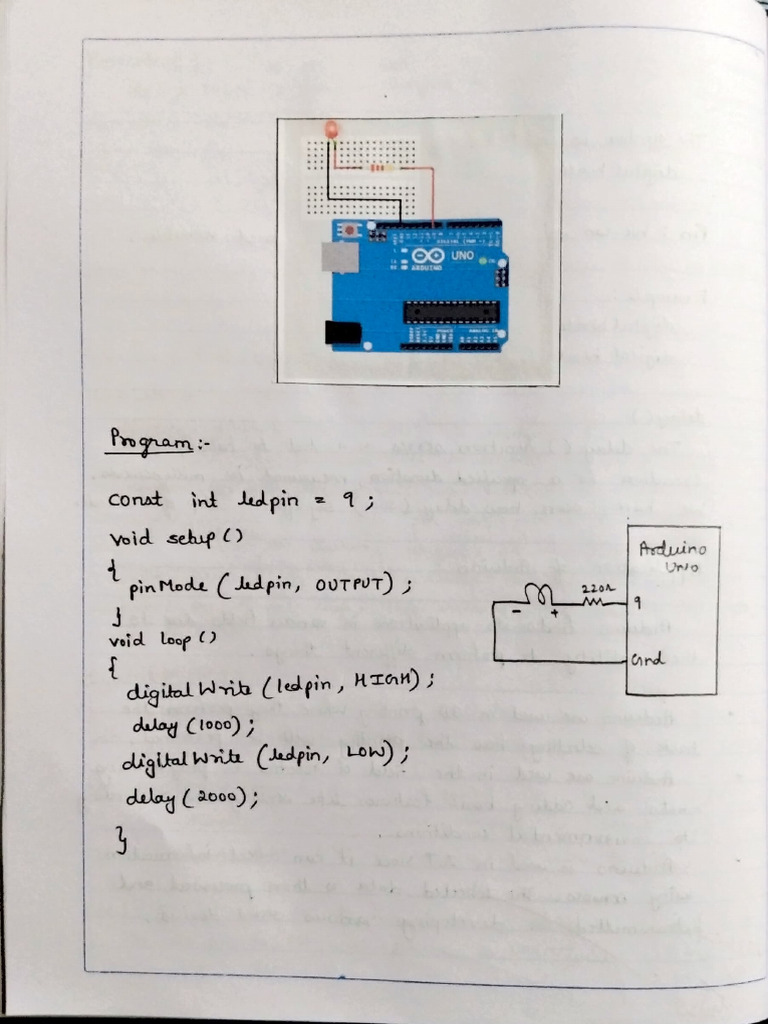 UNO
ARDUINO
Program :-
const int ledpin = 9 ;
void setup ()
{
pinMode (ledpin, OUTPUT) ;
}
void loop ()
{
digitalWrite (ledpin, HIGH) ;
delay (1000) ;
digitalWrite (ledpin, LOW) ;
delay (2000) ;
}
Arduino
Uno
220Ω
9
- +
Gnd